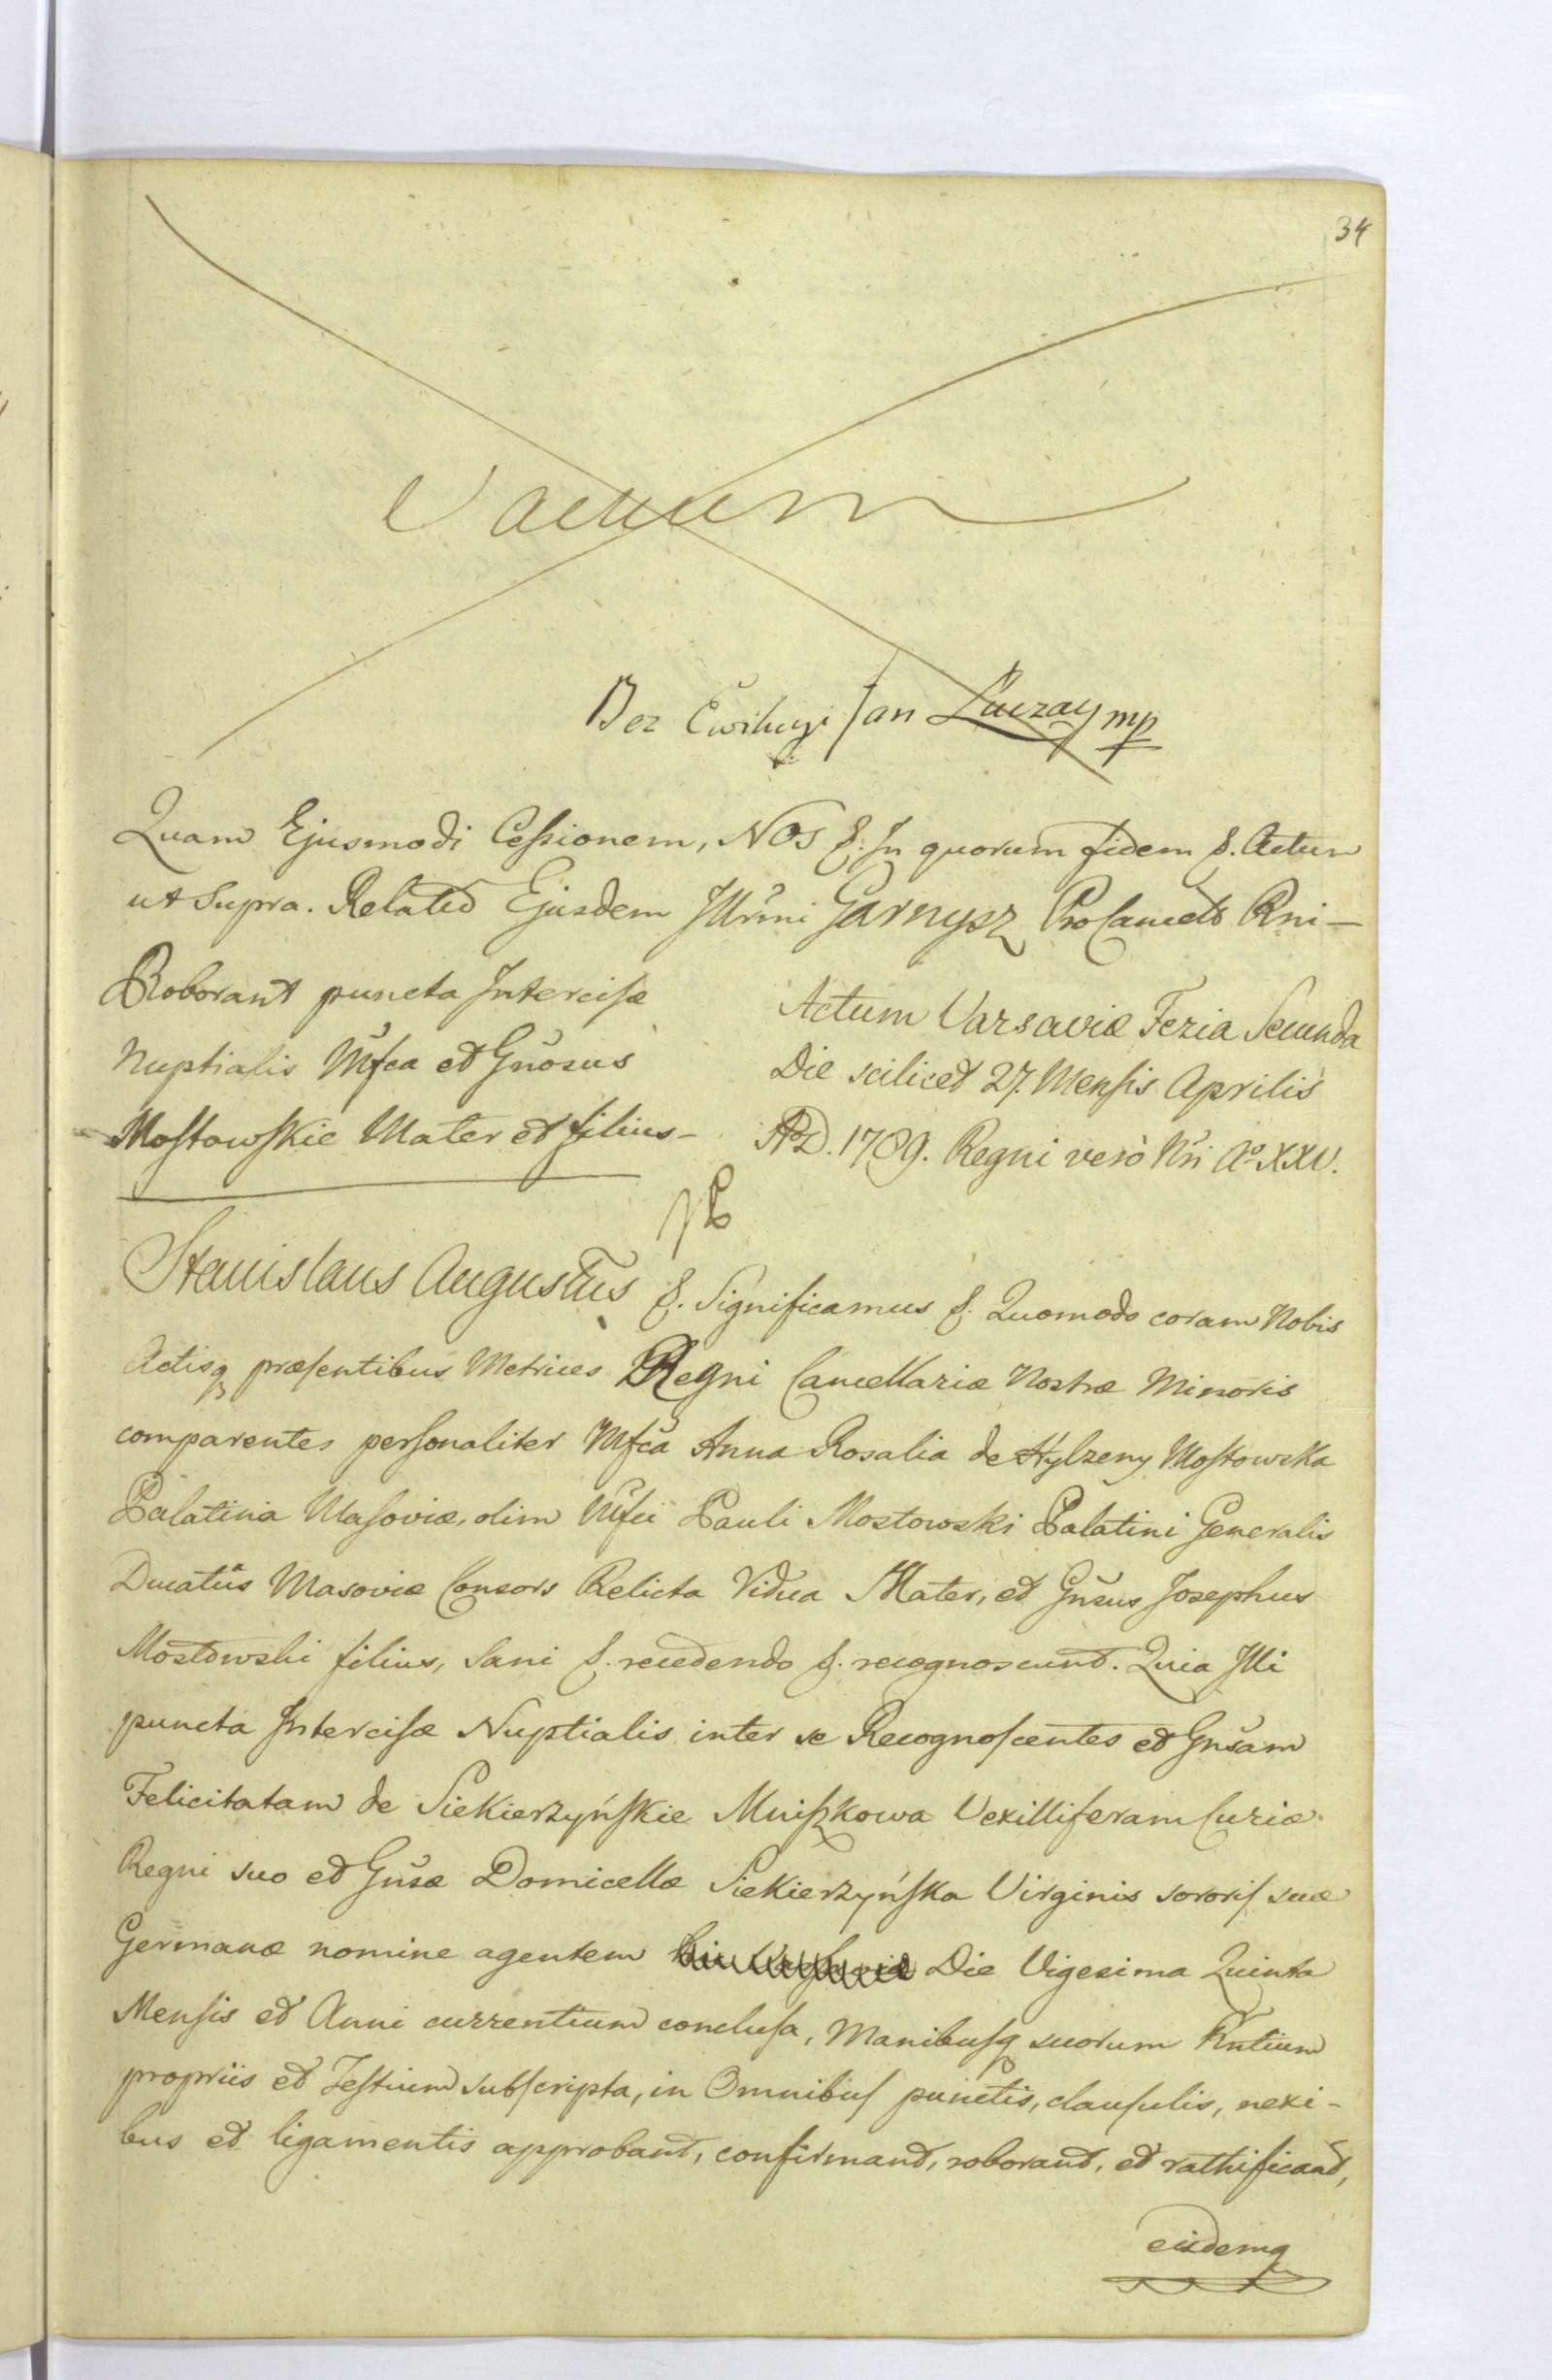 34
Vacuum
Bez Ewikcyi Jan Łuczay mp
Quam Ejusmodi Cessionem, NOS &. In quorum fidem &. Actum
ut Supra. Relatio Ejusdem Illrmi Garnysz ProCancell Rni —
Roborant puncta Intercisæ
Nuptialis Mfca et Gnosus
Mostowskie Mater et filius –
Actum Varsaviæ Feria Secunda
Die scilicet 27. Mensis Aprilis
AD. 1789. Regni verò Nri Aº XXV.
Stanislaus Augustus &. Significamus &. Quomodo coram Nobis
Actisq præsentibus Metrices Regni Cancellariæ Nostræ Minoris
comparentes personaliter Mfca Anna Rosalia de Hylzeny Mostowska
Palatina Masoviæ, olim Mfci Pauli Mostowski Palatini Generalis
Ducatûs Masoviæ Consors Relicta Vidua Mater, et Gnsus Josephus
Mostowski filius, Sani &. recedendo &. recognoscunt. Quia Illi
puncta Intercisæ Nuptialis inter se Recognoscentes et Gnsam
Felicitatam de Siekierzyńskie Mniszkowa Vexilliferam Curiæ
Regni suo et Gnsæ Domicellæ Siekierzyńska Virginis sororis suæ
Germanæ nomine agentem Die Vigesima Quinta
Mensis et Anni currentium conclusa, Manibusq suorum Rntium
propriis et Testium subscripta, in Omnibus punctis, clausulis, nexi-
bus et ligamentis approbant, confirmant, roborant, et rathificant,
eisdemq